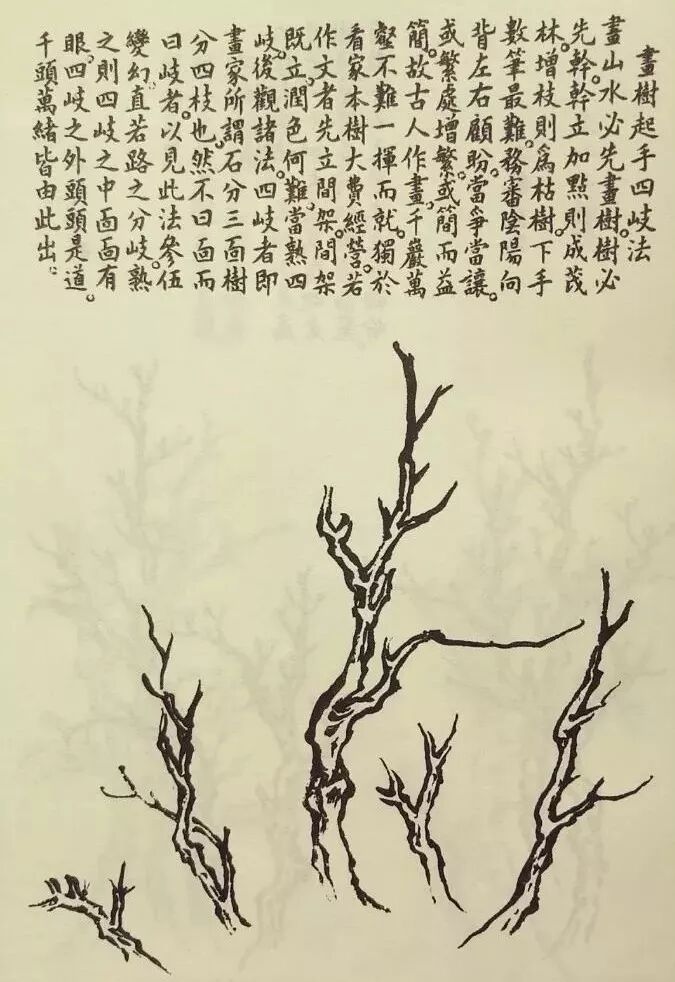 畫樹起手四岐法
畫山水必先畫樹。樹必
先幹。幹立加㸃則成茂
林。增枝則爲枯樹。下手
數筆最難。務審陰陽向
背左右顧盼。當爭當讓。
或繁處增繁。或簡而益
簡。故古人作畫。千巖萬
壑不難一揮而就。獨於
看家本樹大費經營。若
作文者先立間架。間架
既立。潤色何難。當熟四
岐。後觀諸法。四岐者即
畫家所謂石分三面樹
分四枝也。然不曰面而
曰岐者。以見此法參伍
變幻。直若路之分岐。熟
之則四岐之中面面有
眼。四岐之外頭頭是道。
千頭萬緒皆由此出。